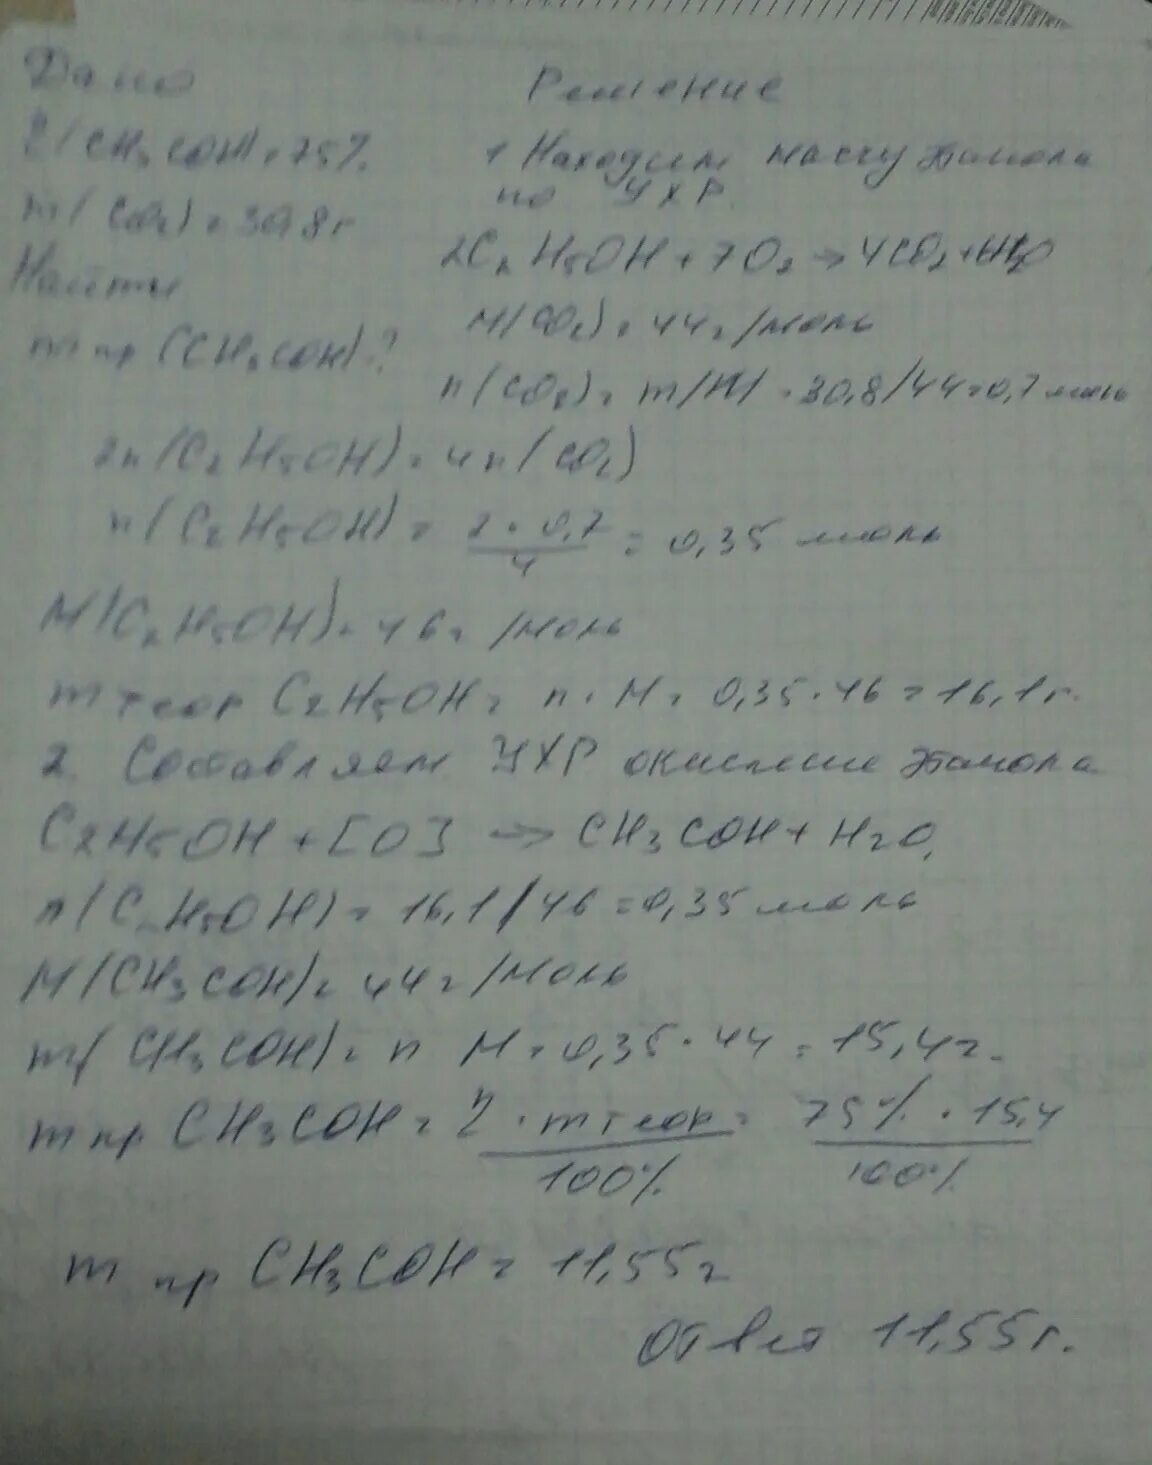 Дано
Решение
η(CH3COH)=75%.
m(CO2)=30,8г
Найти
m пр (CH3COH)?
1 Находим массу этанола
по УХР.
2C2H5OH + 7O2 → 4CO2 + H2O
M(CO2) = 44г/моль
n(CO2) = m/M = 30,8/44=0,7 моль
2n(C2H5OH) = 4n(CO2)
n(C2H5OH) = 2 · 0,7 / 4 = 0,35 моль
M(C2H5OH) = 46г/моль
m теор C2H5OH = n · M = 0,35 · 46 = 16,1г.
2. Составляем УХР окисление этанола
C2H5OH + [O] → CH3COH + H2O.
n(C2H5OH) = 16,1/46 = 0,35 моль
M(CH3COH) = 44г/моль
m(CH3COH) = n M = 0,35 · 44 = 15,4г.
m пр CH3COH = η · m теор / 100% = 75% · 15,4 / 100%
m пр CH3COH = 11,55г
Ответ 11,55г.